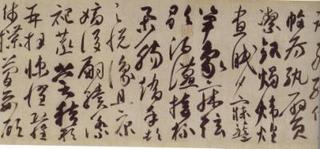 帷房紈扇員
潔銀燭煒煌
晝眠夕寐藍
笋象床絃
歌酒讌接杯
舉觴矯手頓
足悅豫且康
嫡後嗣續祭
祀蒸嘗稽顙
再拜悚懼恐惶
牋牒簡要顧